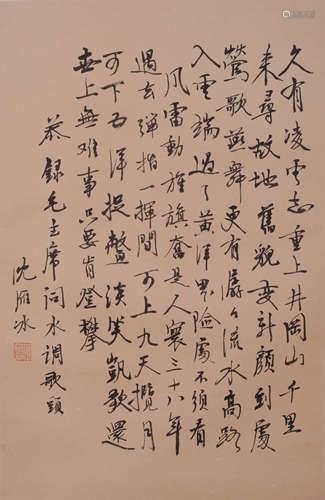 久有凌雲志重上井岡山千里
来尋故地舊貌變新顔到處
鶯歌燕舞更有潺々流水高路
入雲端過了黄洋界險處不須看
風雷動旌旗奮是人寰三十八年
過去彈指一揮間可上九天攬月
可下五洋捉鱉談笑凱歌還
世上無难事只要肯登攀
恭録毛主席詞水調歌頭
沈雁冰